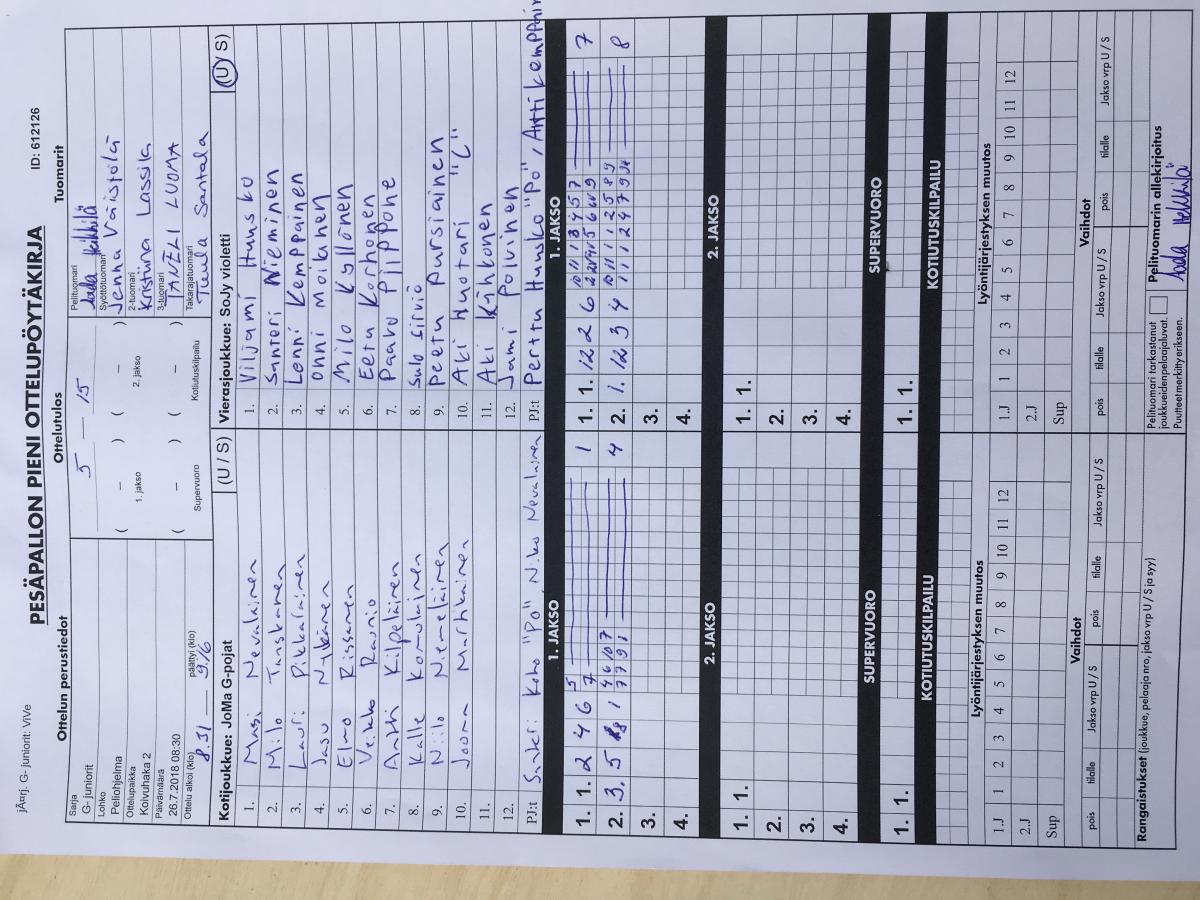 jÃ¤rj. G- juniorit: ViVe
PESÄPALLON PIENI OTTELUPÖYTÄKIRJA
ID: 612126
Ottelun perustiedot
Sarja
G- juniorit
Lohko
Peliohjelma
Ottelupaikka
Koivuhaka 2
Päivämäärä
26.7.2018 08:30
Ottelu alkoi (klo) päättyi (klo)
8.31 — 9.16
Ottelutulos
5 — 15
( – ) ( – )
1. jakso 2. jakso
( – ) ( – )
Supervuoro Kotiutuskilpailu
Tuomarit
Pelituomari
Syöttötuomari
Jenna Väistölä
2-tuomari
Kristiina Lassila
3-tuomari
TANELI LUOMA
Takarajatuomari
Tuula Santala
Kotijoukkue: JoMa G-pojat (U / S)
1. Masi Nevalainen
2. Milo Tanskanen
3. Lauri Pikkalainen
4. Jasu Nykänen
5. Elmo Rissanen
6. Veikko Raunio
7. Antti Kilpeläinen
8. Kalle Komulainen
9. Niilo Niemeläinen
10. Joona Marhikainen
11.
12.
PJ:t Santeri Koho "Po", Niko Nevalainen
Vierasjoukkue: SoJy violetti (U / S)
1. Viljami Huusko
2. Santeri Nieminen
3. Lenni Kemppainen
4. Onni Moilanen
5. Milo Kyllönen
6. Eetu Korhonen
7. Paavo Piippone
8. Sulo Sirviö
9. Peetu Pursiainen
10. Aki Kuotari "C"
11. Aki Kähkönen
12. Jami Polvinen
PJ:t Perttu Huusko "Po", Antti Kemppainen
1. JAKSO
1. 1. 2 4 6 5 7 1
2. 3. 5 1 4 6 10 7 7 7 9 1 4
3.
4.
1. JAKSO
1. 1. 12 2 6 7
2. 1. 12 3 4 8
3.
4.
2. JAKSO
1. 1.
2.
3.
4.
2. JAKSO
1. 1.
2.
3.
4.
SUPERVUORO
1. 1.
SUPERVUORO
1. 1.
KOTIUTUSKILPAILU
KOTIUTUSKILPAILU
Lyöntijärjestyksen muutos
1.J 1 2 3 4 5 6 7 8 9 10 11 12
2.J
Sup
Lyöntijärjestyksen muutos
1.J 1 2 3 4 5 6 7 8 9 10 11 12
2.J
Sup
Vaihdot
pois tilalle Jakso vrp U / S pois tilalle Jakso vrp U / S
Vaihdot
pois tilalle Jakso vrp U / S pois tilalle Jakso vrp U / S
Rangaistukset (joukkue, pelaaja nro, jakso vrp U / S ja syy)
Pelituomari tarkastanut
joukkueidenpelaajaluvat.
Puutteetmerkityerikseen.
Pelituomarin allekirjoitus